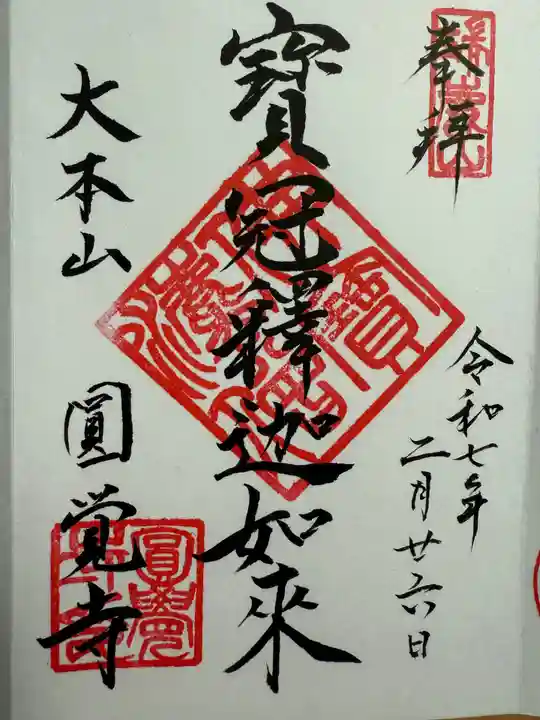 奉拝
令和七年
二月廿六日
寳冠釋迦如來
大本山
圓覚寺